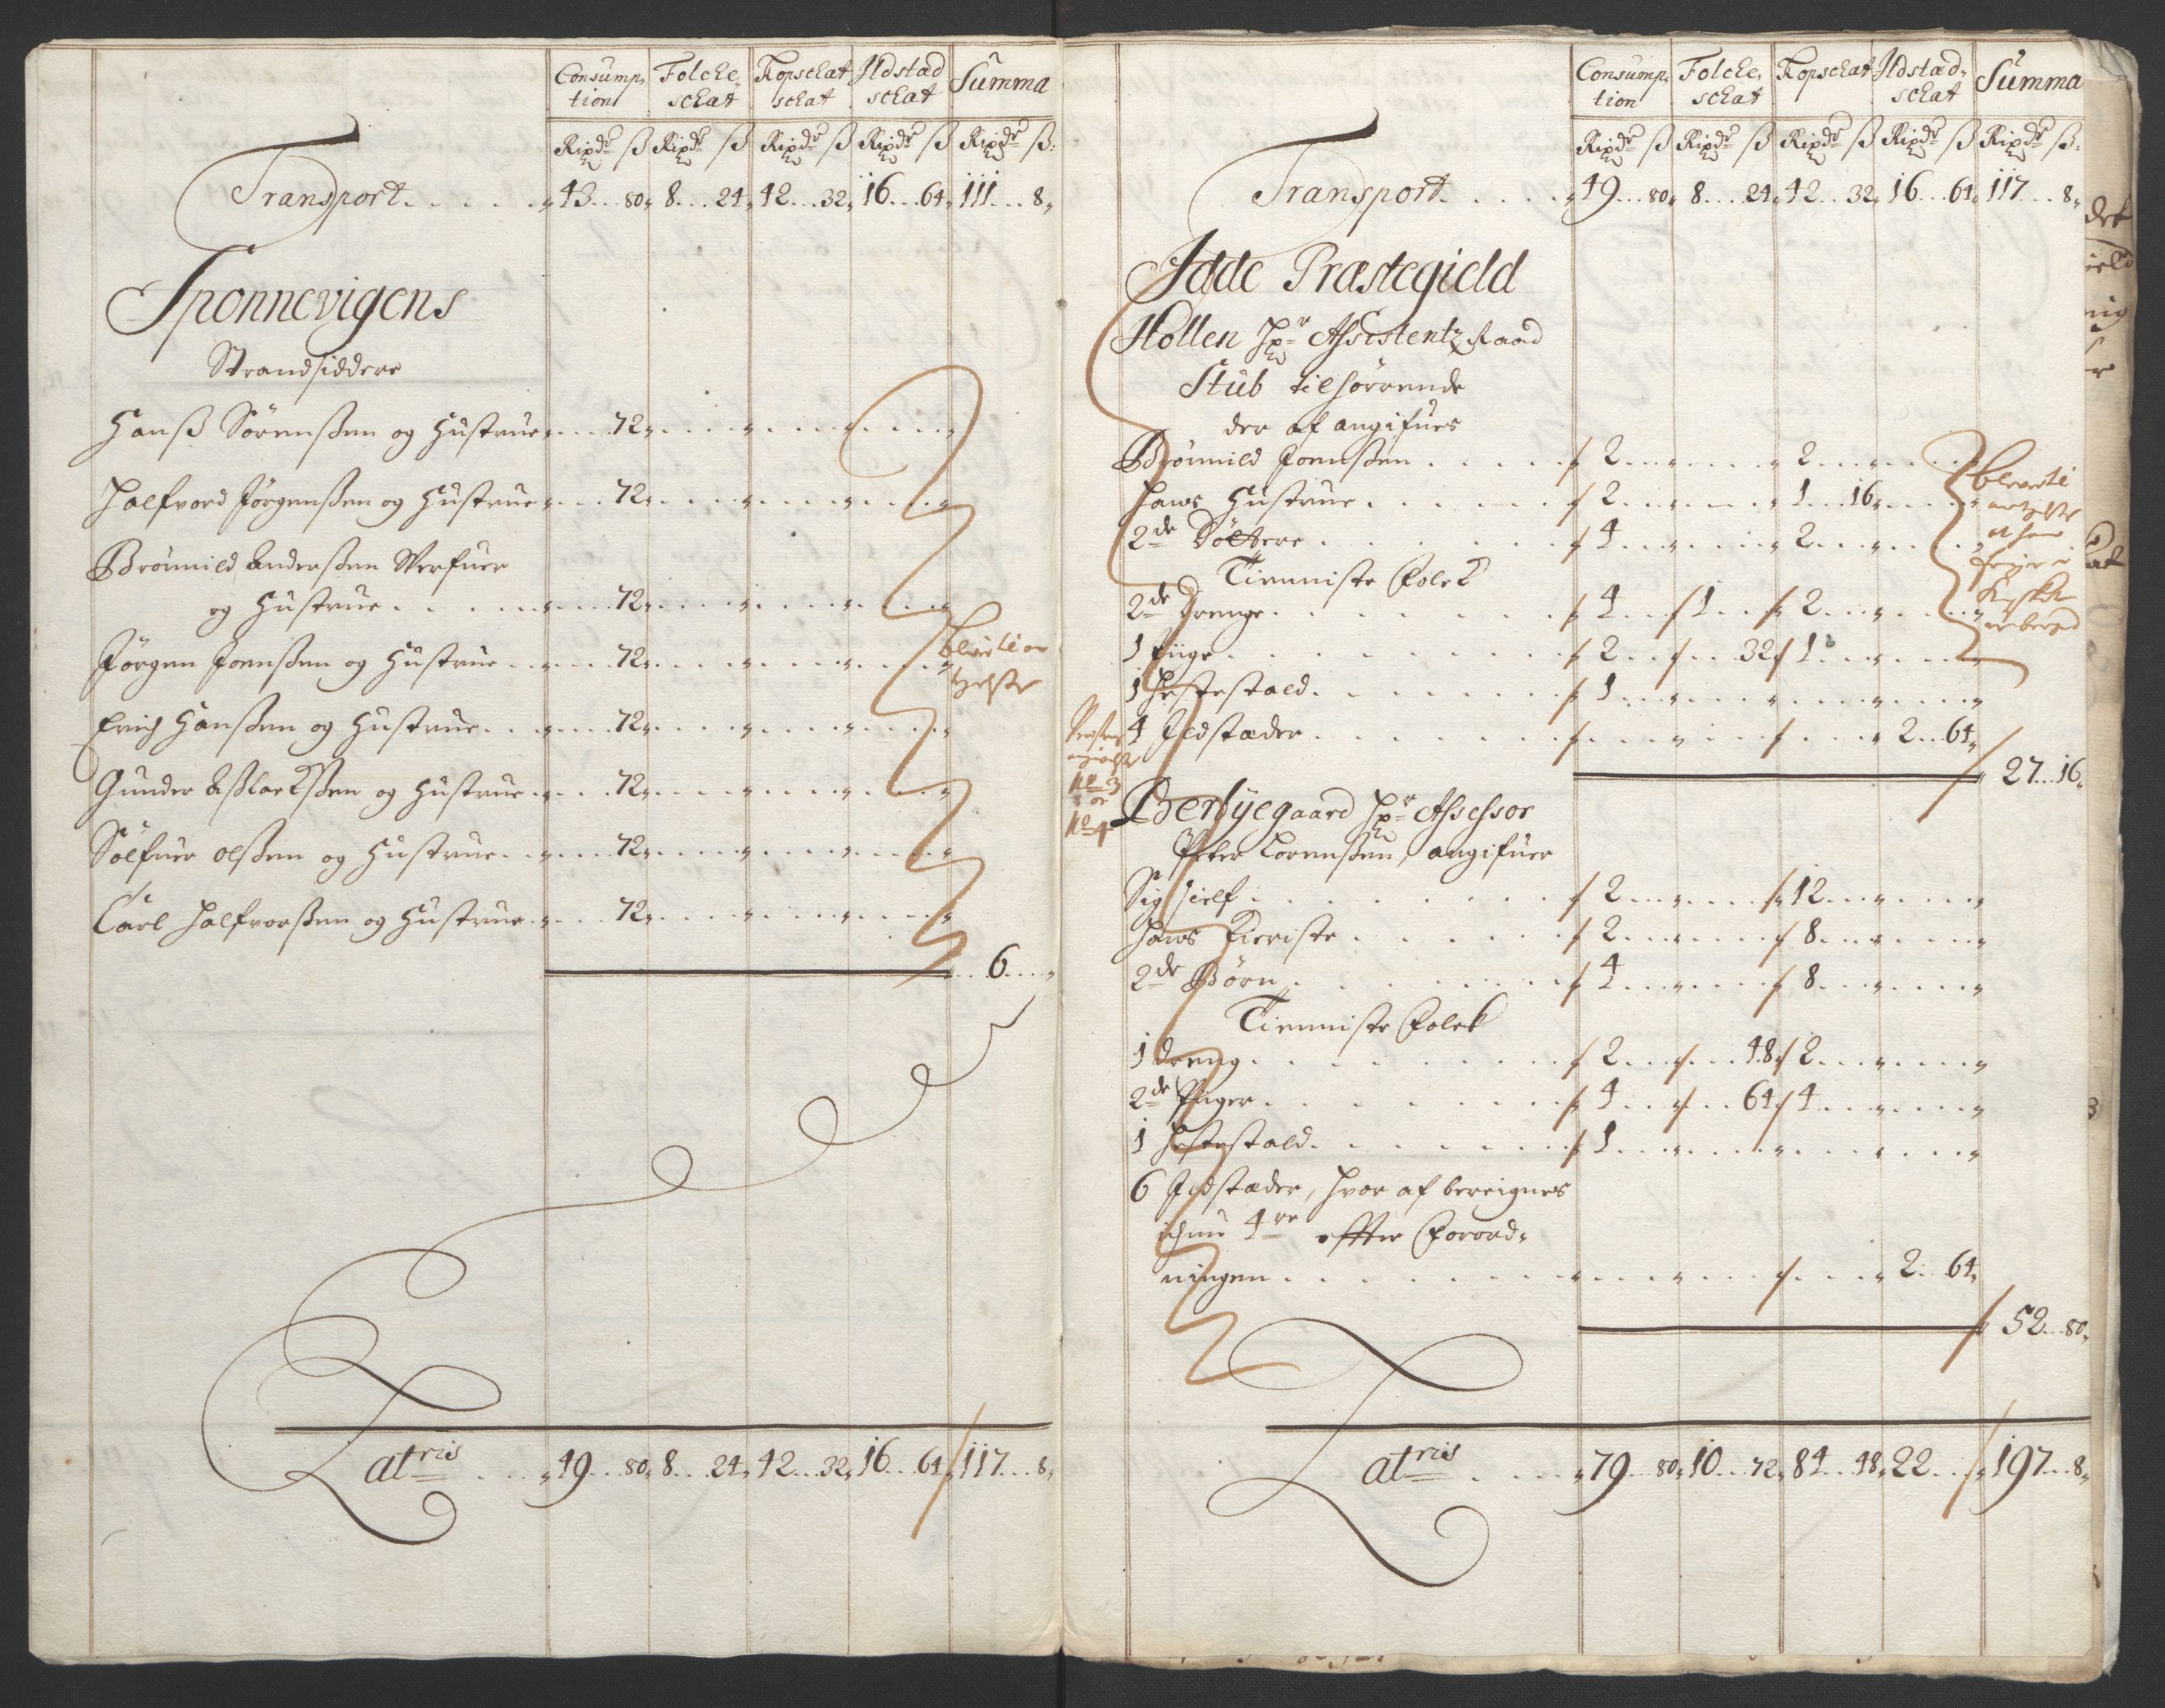 Consump, Folcke, Kopschat Ildstad Summa
tion schat schat schat
Rixdr ß Rixdr ß Rixdr ß Rixdr ß Rixdr ß:
Transport. . . . . 43...80, 8...24, 42...32, 16...64, 111...8,
Sponnevigens
Strandsiddere
Hanß Sörenßen og Hustrue 72,
Halfvord Jörgenßen og Hustrue 72,
Brönnild Anderßen Verfuer
og Hustrue 72,
Jörgen Joenßen og Hustrue 72,
Erich Hanßen og Hustrue 72,
Gunder Aßlackßen og Hustrue 72,
Sölfuer Olßen og Hustrue 72,
Carl Halfvorßen og Hustrue 72,
6
Latris 49...80, 8...24, 42...32, 16...64, 117...8,
Consump, Folcke, Kopschat Ildstad, Summa
tion schat schat
Rixdr ß Rixdr ß Rixdr ß Rixdr ß Rixdr ß:
Transport. . . . . 49...80, 8...24, 42...32, 16...64, 117...8,
Idde Præstegield
Hollen Hr Assistentz Raad
Stub tilhörrende
der af angifues
Brönnild Joenßen 2 2
Hans Hustrue 2 1 16
2de Döttere 4 2
Tienniste Folck
2de Drenge 4 1 2
1 Piige 2 32 1
1 Hestestald 1
4 Ildstæder 2 64,
27...16,
Berbyegaard Hr Assessor
Peter Lorenßen, angifuer
Sig Self 2 12
Hans Kieriste 2 8
2de Börn 4 8
Tienniste Folck
1 dreng 2 48 2
2de Piiger 4 64 4
1 Hestestald 1
6 Ildstæder, hvor af bereignes
ichun 4re efter Forord,
ningen 2 64,
52...80,
Latris 79...80, 10...72, 84...48, 22... 197...8,